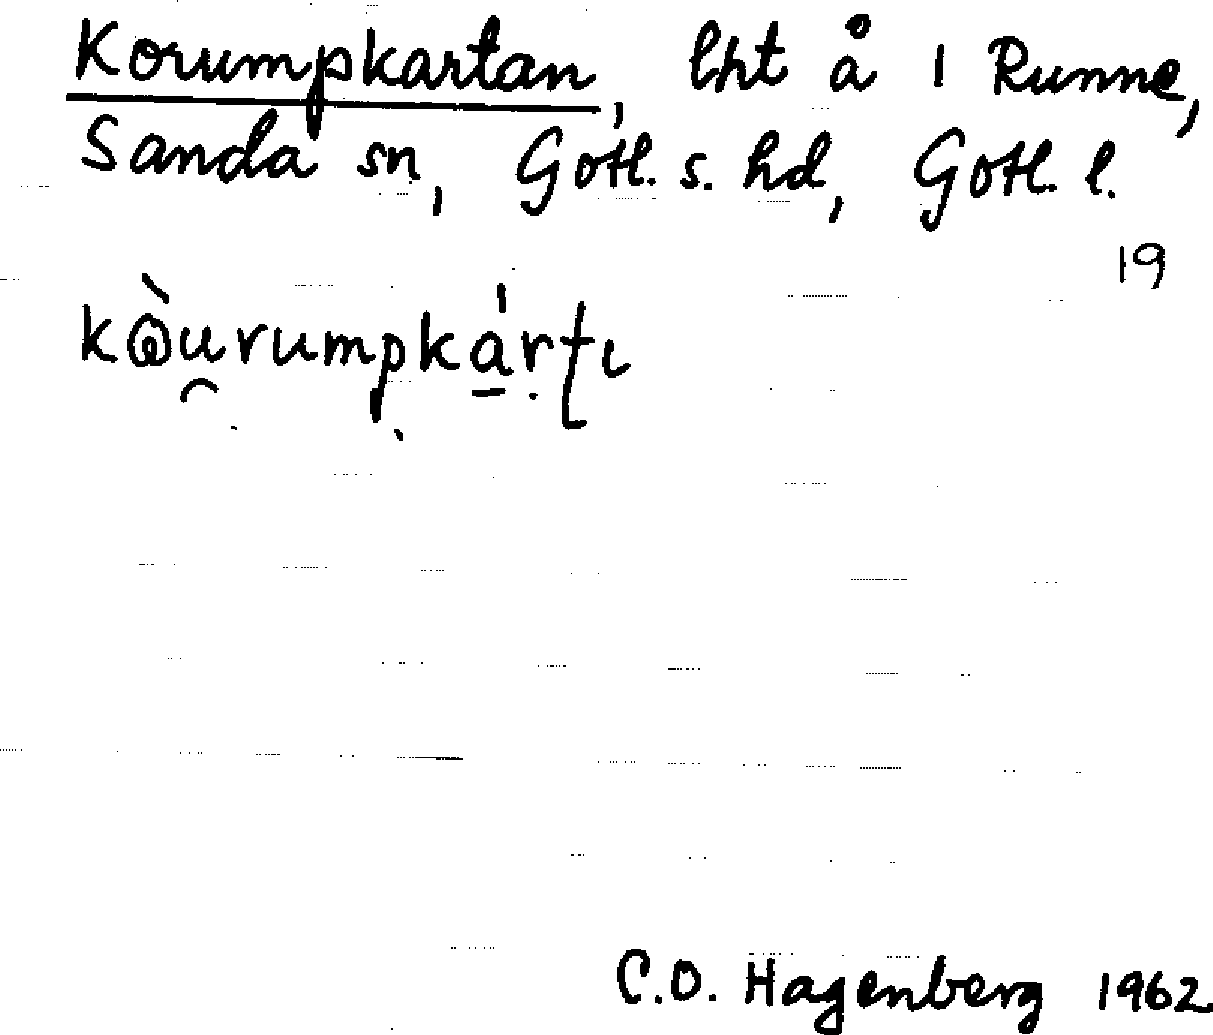 Korumpkartan, lht å 1 Runne,
Sanda sn, Gotl. s. hd, Gotl. l.
19
C.O. Hagenberg 1962